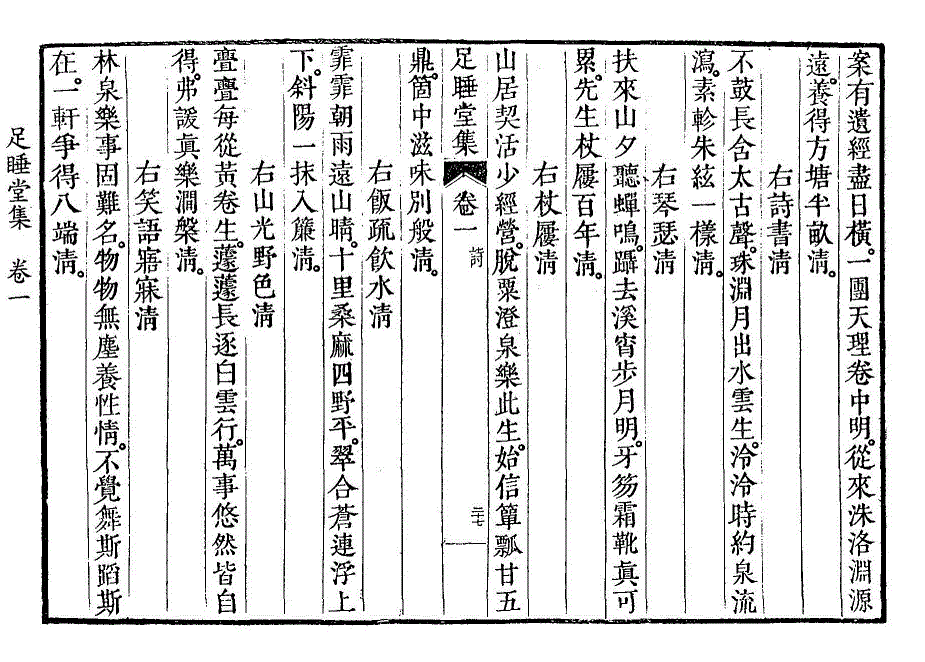 案有遺經盡日橫。一團天理卷中明。從來洙洛淵源
遠。養得方塘半畝清。
右詩書清
不鼓長含太古聲。珠淵月出水雲生。泠泠時約泉流
瀉。素軫朱絃一樣清。
右琴瑟清
扶來山夕聽蟬鳴。躡去溪宵步月明。牙笏霜靴眞可
累。先生杖屨百年清。
右杖屨清
山居契活少經營。脫粟澄泉樂此生。始信簞瓢甘五
足睡堂集 卷一 詩 二十七
鼎。箇中滋味別般清。
右飯疏飮水清
霏霏朝雨遠山晴。十里桑麻四野平。翠合蒼連浮上
下。斜陽一抹入簾清。
右山光野色清
亹亹每從黃卷生。蘧蘧長逐白雲行。萬事悠然皆自
得。弗諼眞樂澗槃清。
右笑語寤寐清
林泉樂事固難名。物物無塵養性情。不覺舞斯蹈斯
在。一軒爭得八端清。
足睡堂集 卷一